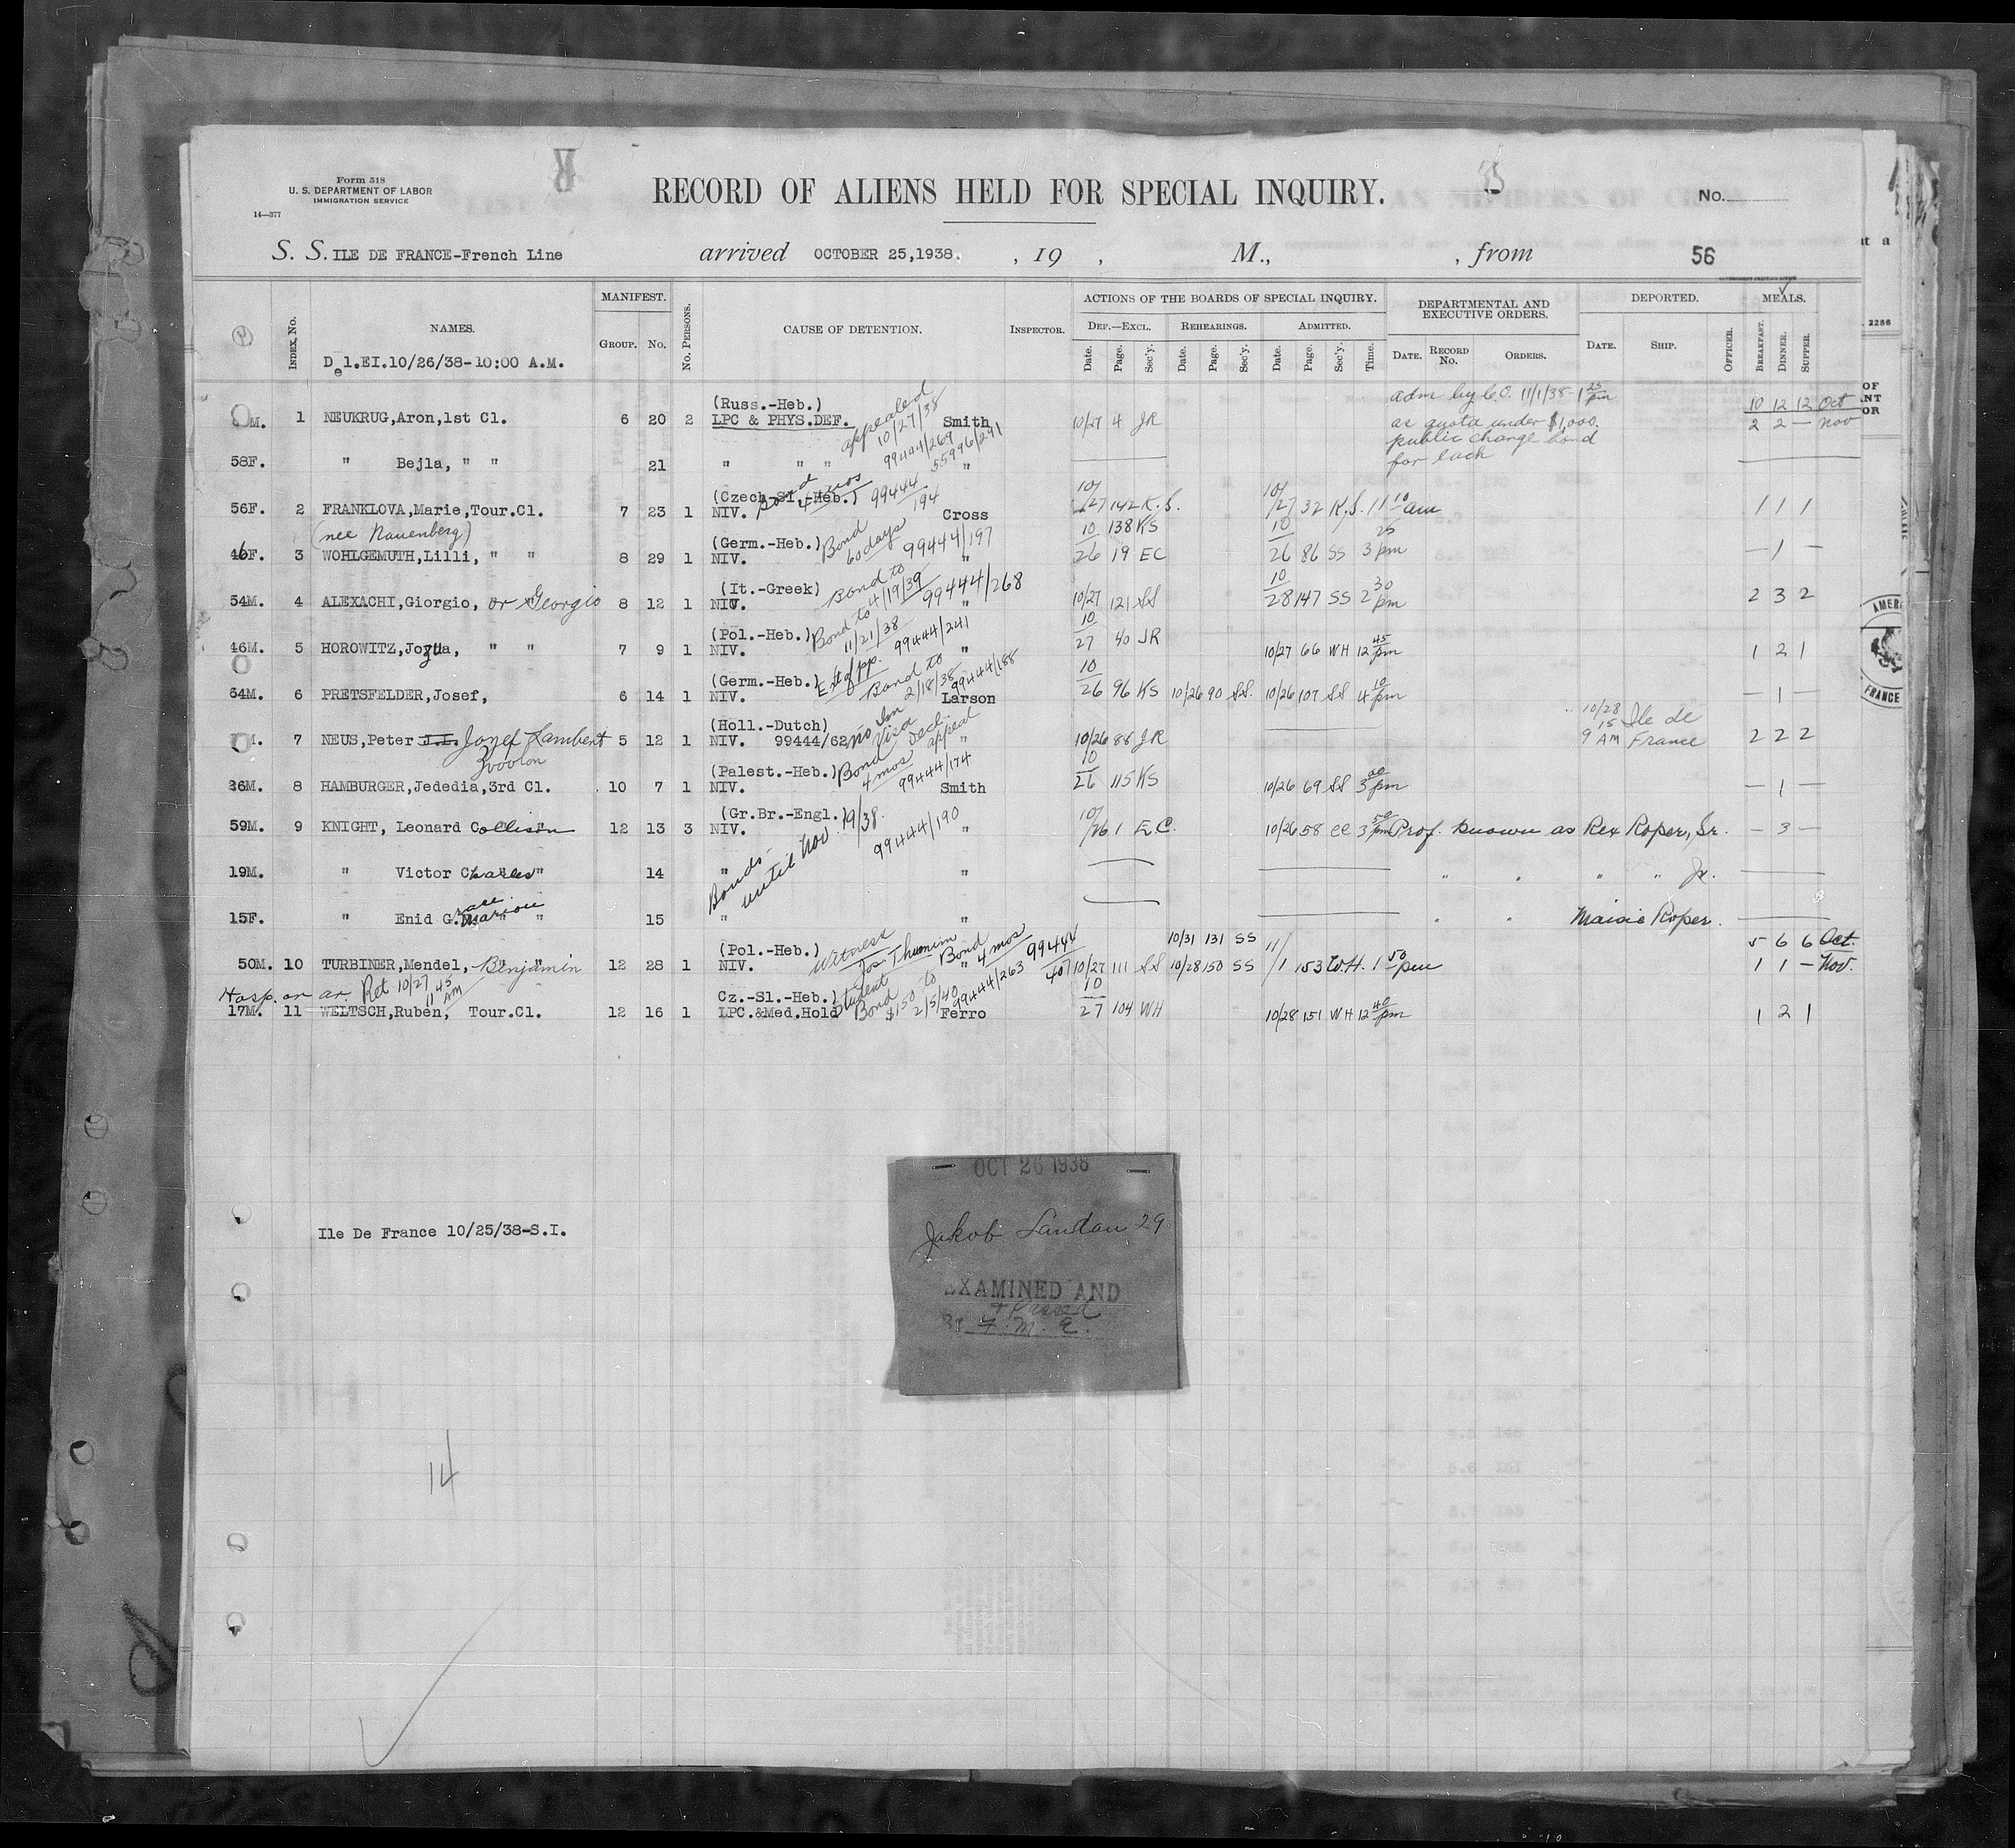 Form 518
U. S. DEPARTMENT OF LABOR
IMMIGRATION SERVICE
14—377
RECORD OF ALIENS HELD FOR SPECIAL INQUIRY.
No.
S. S. ILE DE FRANCE-French Line arrived OCTOBER 25,1938. , 19 , M., , from 56
INDEX, No. NAMES. MANIFEST. GROUP. No. No. PERSONS. CAUSE OF DETENTION. INSPECTOR. ACTIONS OF THE BOARDS OF SPECIAL INQUIRY. DEPARTMENTAL AND EXECUTIVE ORDERS. DEPORTED. MEALS.
DEF.—EXCL. REHEARINGS. ADMITTED.
Date. Page. Sec'y. Date. Page. Sec'y. Date. Page. Sec'y. Time. DATE. RECORD No. ORDERS. DATE. SHIP. OFFICER. BREAKFAST. DINNER. SUPPER.
2286
Del.EI.10/26/38-10:00 A.M.
(Russ.-Heb.) appealed 10/27/38 adm by C.O. 11/1/38-1 25 pm
M. 1 NEUKRUG,Aron,1st Cl. 6 20 2 LPC & PHYS.DEF. Smith 10/27 4 JR as quota under $1,000. 10 12 12 Oct
99444/269 55996/241 public charge bond 2 2 — Nov
58F. " Bejla, " " 21 " " " " for each
(Czech-Sl.-Heb.) Bond 4 mos 99444/194
56F. 2 FRANKLOVA,Marie,Tour.Cl. 7 23 1 NIV. Cross 10/27 142 K.S. 10/27 32 K.S. 11 10 am 1 1 1
(nee Nauenberg) 10 138 KS
(Germ.-Heb.) Bond 60 days 99444/197
46F. 3 WOHLGEMUTH,Lilli, " " 8 29 1 NIV. " 10/26 19 EC 10/26 86 SS 3 25 pm — 1 —
(It.-Greek) Bond to 4/19/39 99444/268
54M. 4 ALEXACHI,Giorgio, or Georgio 8 12 1 NIV. " 10/27 121 SS 10/28 147 SS 2 30 pm 2 3 2
(Pol.-Heb.) Bond to 11/21/38 99444/241
46M. 5 HOROWITZ,Jozua, " " 7 9 1 NIV. " 10/27 40 JR 10/27 66 WH 12 45 pm 1 2 1
(Germ.-Heb.) Bond to 2/18/38 99444/188
64M. 6 PRETSFELDER,Josef, 6 14 1 NIV. Larson 10/26 96 KS 10/26 90 SS. 10/26 107 SS 4 10 pm — 1 —
(Holl.-Dutch) no visa decl. appeal 10/28
M. 7 NEUS,Peter J.L. Jozef Lambert 5 12 1 NIV. 99444/62 " 10/26 86 JR 9 15 AM Ile de France 2 2 2
(Palest.-Heb.) Bond 4 mos 99444/174
26M. 8 HAMBURGER,Jededia,3rd Cl. 10 7 1 NIV. Smith 10/26 115 KS 10/26 69 SS 3 00 pm — 1 —
(Gr.Br.-Engl.) Bonds until Nov. 19/38. 99444/190
59M. 9 KNIGHT, Leonard Collison 12 13 3 NIV. " 10/26 1 E.C. 10/26 58 EC 3 50 pm Prof. known as Rex Roper, Sr. — 3 —
19M. " Victor Charles " 14 " " " " " " Jr.
15F. " Enid Grace Marion " 15 " " " " Maisie Roper.
(Pol.-Heb.) Witness Jos. Thumim Bond 4 mos 99444/407 10/31 131 SS 5 6 6 Oct.
50M. 10 TURBINER,Mendel, Benjamin 12 28 1 NIV. " 10/27 111 SS 10/28 150 SS 11/1 153 W.H. 1 50 pm 1 1 — Nov.
Hosp. on ar. Ret 10/27 11 45 AM
Cz.-Sl.-Heb.) Student Bond $150 to 2/5/40 99444/263
17M. 11 WELTSCH,Ruben, Tour.Cl. 12 16 1 LPC.&Med.Hold Ferro 10/27 104 WH 10/28 151 WH 12 40 pm 1 2 1
OCT 26 1938
Jakob Landau 29
Ile De France 10/25/38-S.I.
EXAMINED AND
+ Passed
BY F. M. E.
14